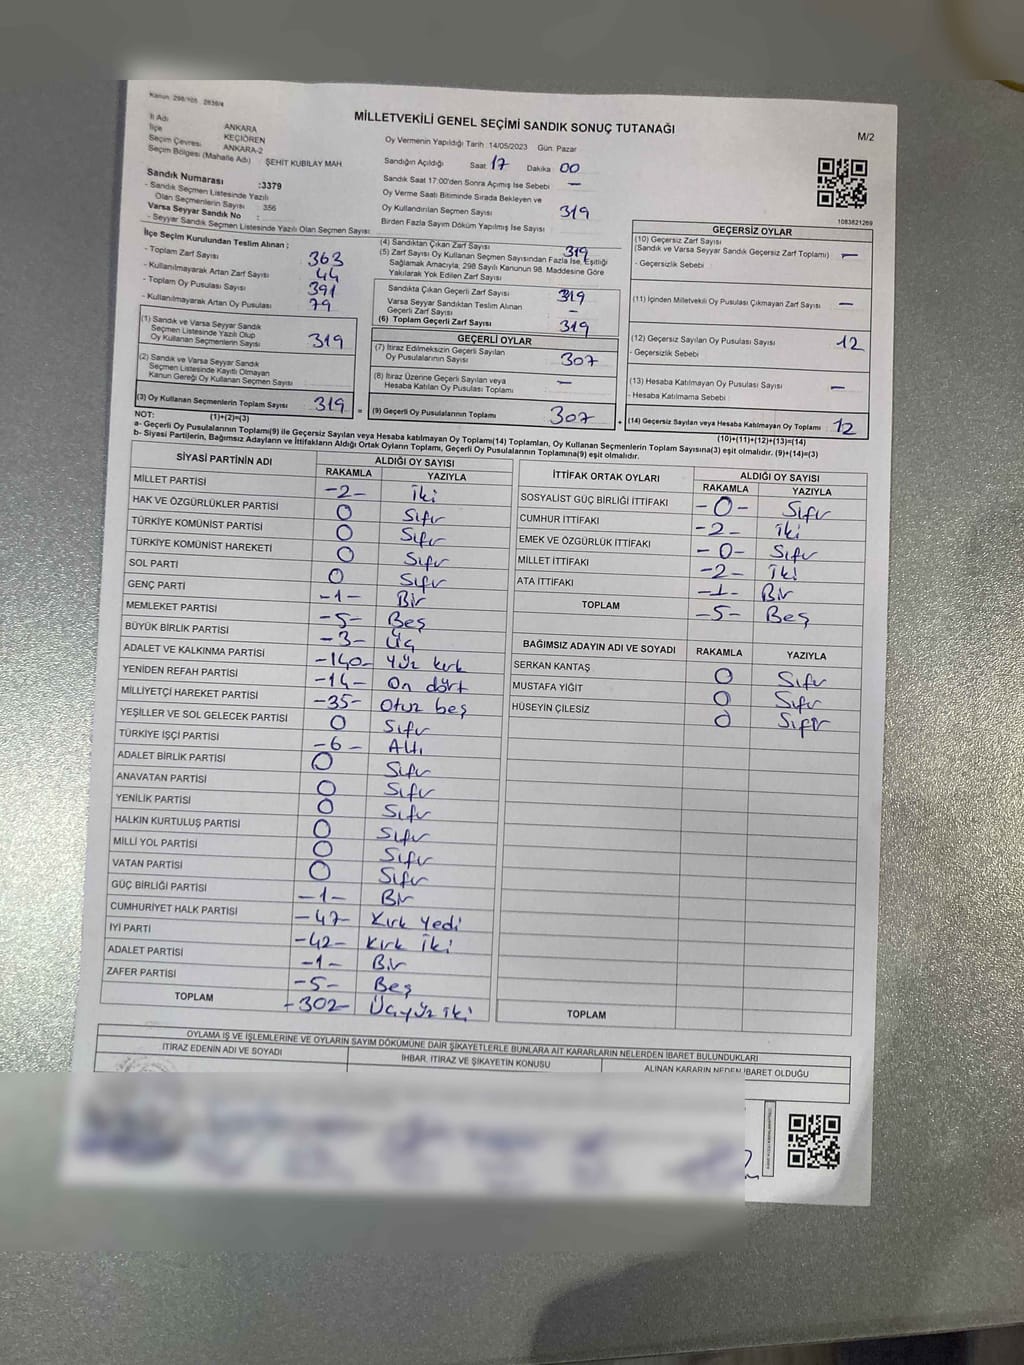 Kanun 298/105 2839/4
MİLLETVEKİLİ GENEL SEÇİMİ SANDIK SONUÇ TUTANAĞI
M/2
İl Adı ANKARA
İlçe KEÇİÖREN
Seçim Çevresi ANKARA-2
Seçim Bölgesi (Mahalle Adı) : ŞEHİT KUBİLAY MAH.
Sandık Numarası :3379
- Sandık Seçmen Listesinde Yazılı
Olan Seçmenlerin Sayısı : 356
Varsa Seyyar Sandık No :
- Seyyar Sandık Seçmen Listesinde Yazılı Olan Seçmen Sayısı:
Oy Vermenin Yapıldığı Tarih :14/05/2023 Gün: Pazar
Sandığın Açıldığı Saat 17 Dakika 00
Sandık Saat 17:00'den Sonra Açımış İse Sebebi —
Oy Verme Saati Bitiminde Sırada Bekleyen ve
Oy Kullandırılan Seçmen Sayısı 319
Birden Fazla Sayım Döküm Yapılmış İse Sayısı
1083821269
İlçe Seçim Kurulundan Teslim Alınan ;
- Toplam Zarf Sayısı 363
- Kullanılmayarak Artan Zarf Sayısı 44
- Toplam Oy Pusulası Sayısı 391
- Kullanılmayarak Artan Oy Pusulası 79
(1) Sandık ve Varsa Seyyar Sandık
Seçmen Listesinde Yazılı Olup
Oy Kullanan Seçmenlerin Sayısı 319
(2) Sandık ve Varsa Seyyar Sandık
Seçmen Listesinde Kayıtlı Olmayan
Kanun Gereği Oy Kullanan Seçmen Sayısı
(3) Oy Kullanan Seçmenlerin Toplam Sayısı 319 =
(1)+(2)=(3)
(4) Sandıktan Çıkan Zarf Sayısı 319
(5) Zarf Sayısı Oy Kullanan Seçmen Sayısından Fazla İse, Eşitliği
Sağlamak Amacıyla, 298 Sayılı Kanunun 98. Maddesine Göre
Yakılarak Yok Edilen Zarf Sayısı
Sandıkta Çıkan Geçerli Zarf Sayısı 319
Varsa Seyyar Sandıktan Teslim Alınan
Geçerli Zarf Sayısı —
(6) Toplam Geçerli Zarf Sayısı 319
GEÇERLİ OYLAR
(7) İtiraz Edilmeksizin Geçerli Sayılan
Oy Pusulalarının Sayısı 307
(8) İtiraz Üzerine Geçerli Sayılan veya
Hesaba Katılan Oy Pusulası Toplamı —
(9) Geçerli Oy Pusulalarının Toplamı 307 +
GEÇERSİZ OYLAR
(10) Geçersiz Zarf Sayısı
(Sandık ve Varsa Seyyar Sandık Geçersiz Zarf Toplamı) —
- Geçersizlik Sebebi :
(11) İçinden Milletvekili Oy Pusulası Çıkmayan Zarf Sayısı —
(12) Geçersiz Sayılan Oy Pusulası Sayısı 12
- Geçersizlik Sebebi
(13) Hesaba Katılmayan Oy Pusulası Sayısı —
- Hesaba Katılmama Sebebi :
(14) Geçersiz Sayılan veya Hesaba Katılmayan Oy Toplamı 12
(10)+(11)+(12)+(13)=(14)
NOT:
a- Geçerli Oy Pusulalarının Toplamı(9) ile Geçersiz Sayılan veya Hesaba katılmayan Oy Toplamı(14) Toplamları, Oy Kullanan Seçmenlerin Toplam Sayısına(3) eşit olmalıdır. (9)+(14)=(3)
b- Siyasi Partilerin, Bağımsız Adayların ve İttifakların Aldığı Ortak Oyların Toplamı, Geçerli Oy Pusulalarının Toplamına(9) eşit olmalıdır.
SİYASİ PARTİNİN ADI ALDIĞI OY SAYISI
RAKAMLA YAZIYLA
MİLLET PARTİSİ -2- iki
HAK VE ÖZGÜRLÜKLER PARTİSİ 0 Sıfır
TÜRKİYE KOMÜNİST PARTİSİ 0 Sıfır
TÜRKİYE KOMÜNİST HAREKETİ 0 Sıfır
SOL PARTİ 0 Sıfır
GENÇ PARTİ -1- Bir
MEMLEKET PARTİSİ -5- Beş
BÜYÜK BİRLİK PARTİSİ -3- Üç
ADALET VE KALKINMA PARTİSİ -140- Yüz kırk
YENİDEN REFAH PARTİSİ -14- On dört
MİLLİYETÇİ HAREKET PARTİSİ -35- Otuz beş
YEŞİLLER VE SOL GELECEK PARTİSİ 0 Sıfır
TÜRKİYE İŞÇİ PARTİSİ -6- Altı
ADALET BİRLİK PARTİSİ 0 Sıfır
ANAVATAN PARTİSİ 0 Sıfır
YENİLİK PARTİSİ 0 Sıfır
HALKIN KURTULUŞ PARTİSİ 0 Sıfır
MİLLİ YOL PARTİSİ 0 Sıfır
VATAN PARTİSİ 0 Sıfır
GÜÇ BİRLİĞİ PARTİSİ -1- Bir
CUMHURİYET HALK PARTİSİ -47- Kırk Yedi
İYİ PARTİ -42- Kırk iki
ADALET PARTİSİ -1- Bir
ZAFER PARTİSİ -5- Beş
TOPLAM -302- Üçyüz iki
İTTİFAK ORTAK OYLARI ALDIĞI OY SAYISI
RAKAMLA YAZIYLA
SOSYALİST GÜÇ BİRLİĞİ İTTİFAKI -0- Sıfır
CUMHUR İTTİFAKI -2- iki
EMEK VE ÖZGÜRLÜK İTTİFAKI -0- Sıfır
MİLLET İTTİFAKI -2- iki
ATA İTTİFAKI -1- Bir
TOPLAM -5- Beş
BAĞIMSIZ ADAYIN ADI VE SOYADI RAKAMLA YAZIYLA
SERKAN KANTAŞ 0 Sıfır
MUSTAFA YİĞİT 0 Sıfır
HÜSEYİN ÇİLESİZ 0 Sıfır
TOPLAM
OYLAMA İŞ VE İŞLEMLERİNE VE OYLARIN SAYIM DÖKÜMÜNE DAİR ŞİKAYETLERLE BUNLARA AİT KARARLARIN NELERDEN İBARET BULUNDUKLARI
İTİRAZ EDENİN ADI VE SOYADI İHBAR, İTİRAZ VE ŞİKAYETİN KONUSU ALINAN KARARIN NEDEN İBARET OLDUĞU